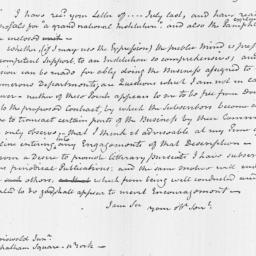 I have rec'd your Letter of ... July last, and have read
posals for a grand national Institution; and also the Pamphlet
inclosed
Whether, (if I may use the expression) the public Mind is pre
competent Support to an Institution so comprehensive; and
sion can be made for ably doing the Business assigned to
umerous Departments, are Questions which I am not in ca
wer a number of these points appears to me to be free from Do
to the proposed Contract, by which the Subscribers become
us to transact certain parts of the Business by their Comm
only observe, that I think it advisable at my Time of
cline entering into any Engagements of that Description
ven a desire to promote literary pursuits I have subscri
us periodical Publications; and the same motive will indu
others, which from being well conducted and
lated to be useful appear to merit Encouragement
I am Sir
your Ob. Serv.
riswold Junr.
Chatham Square N York